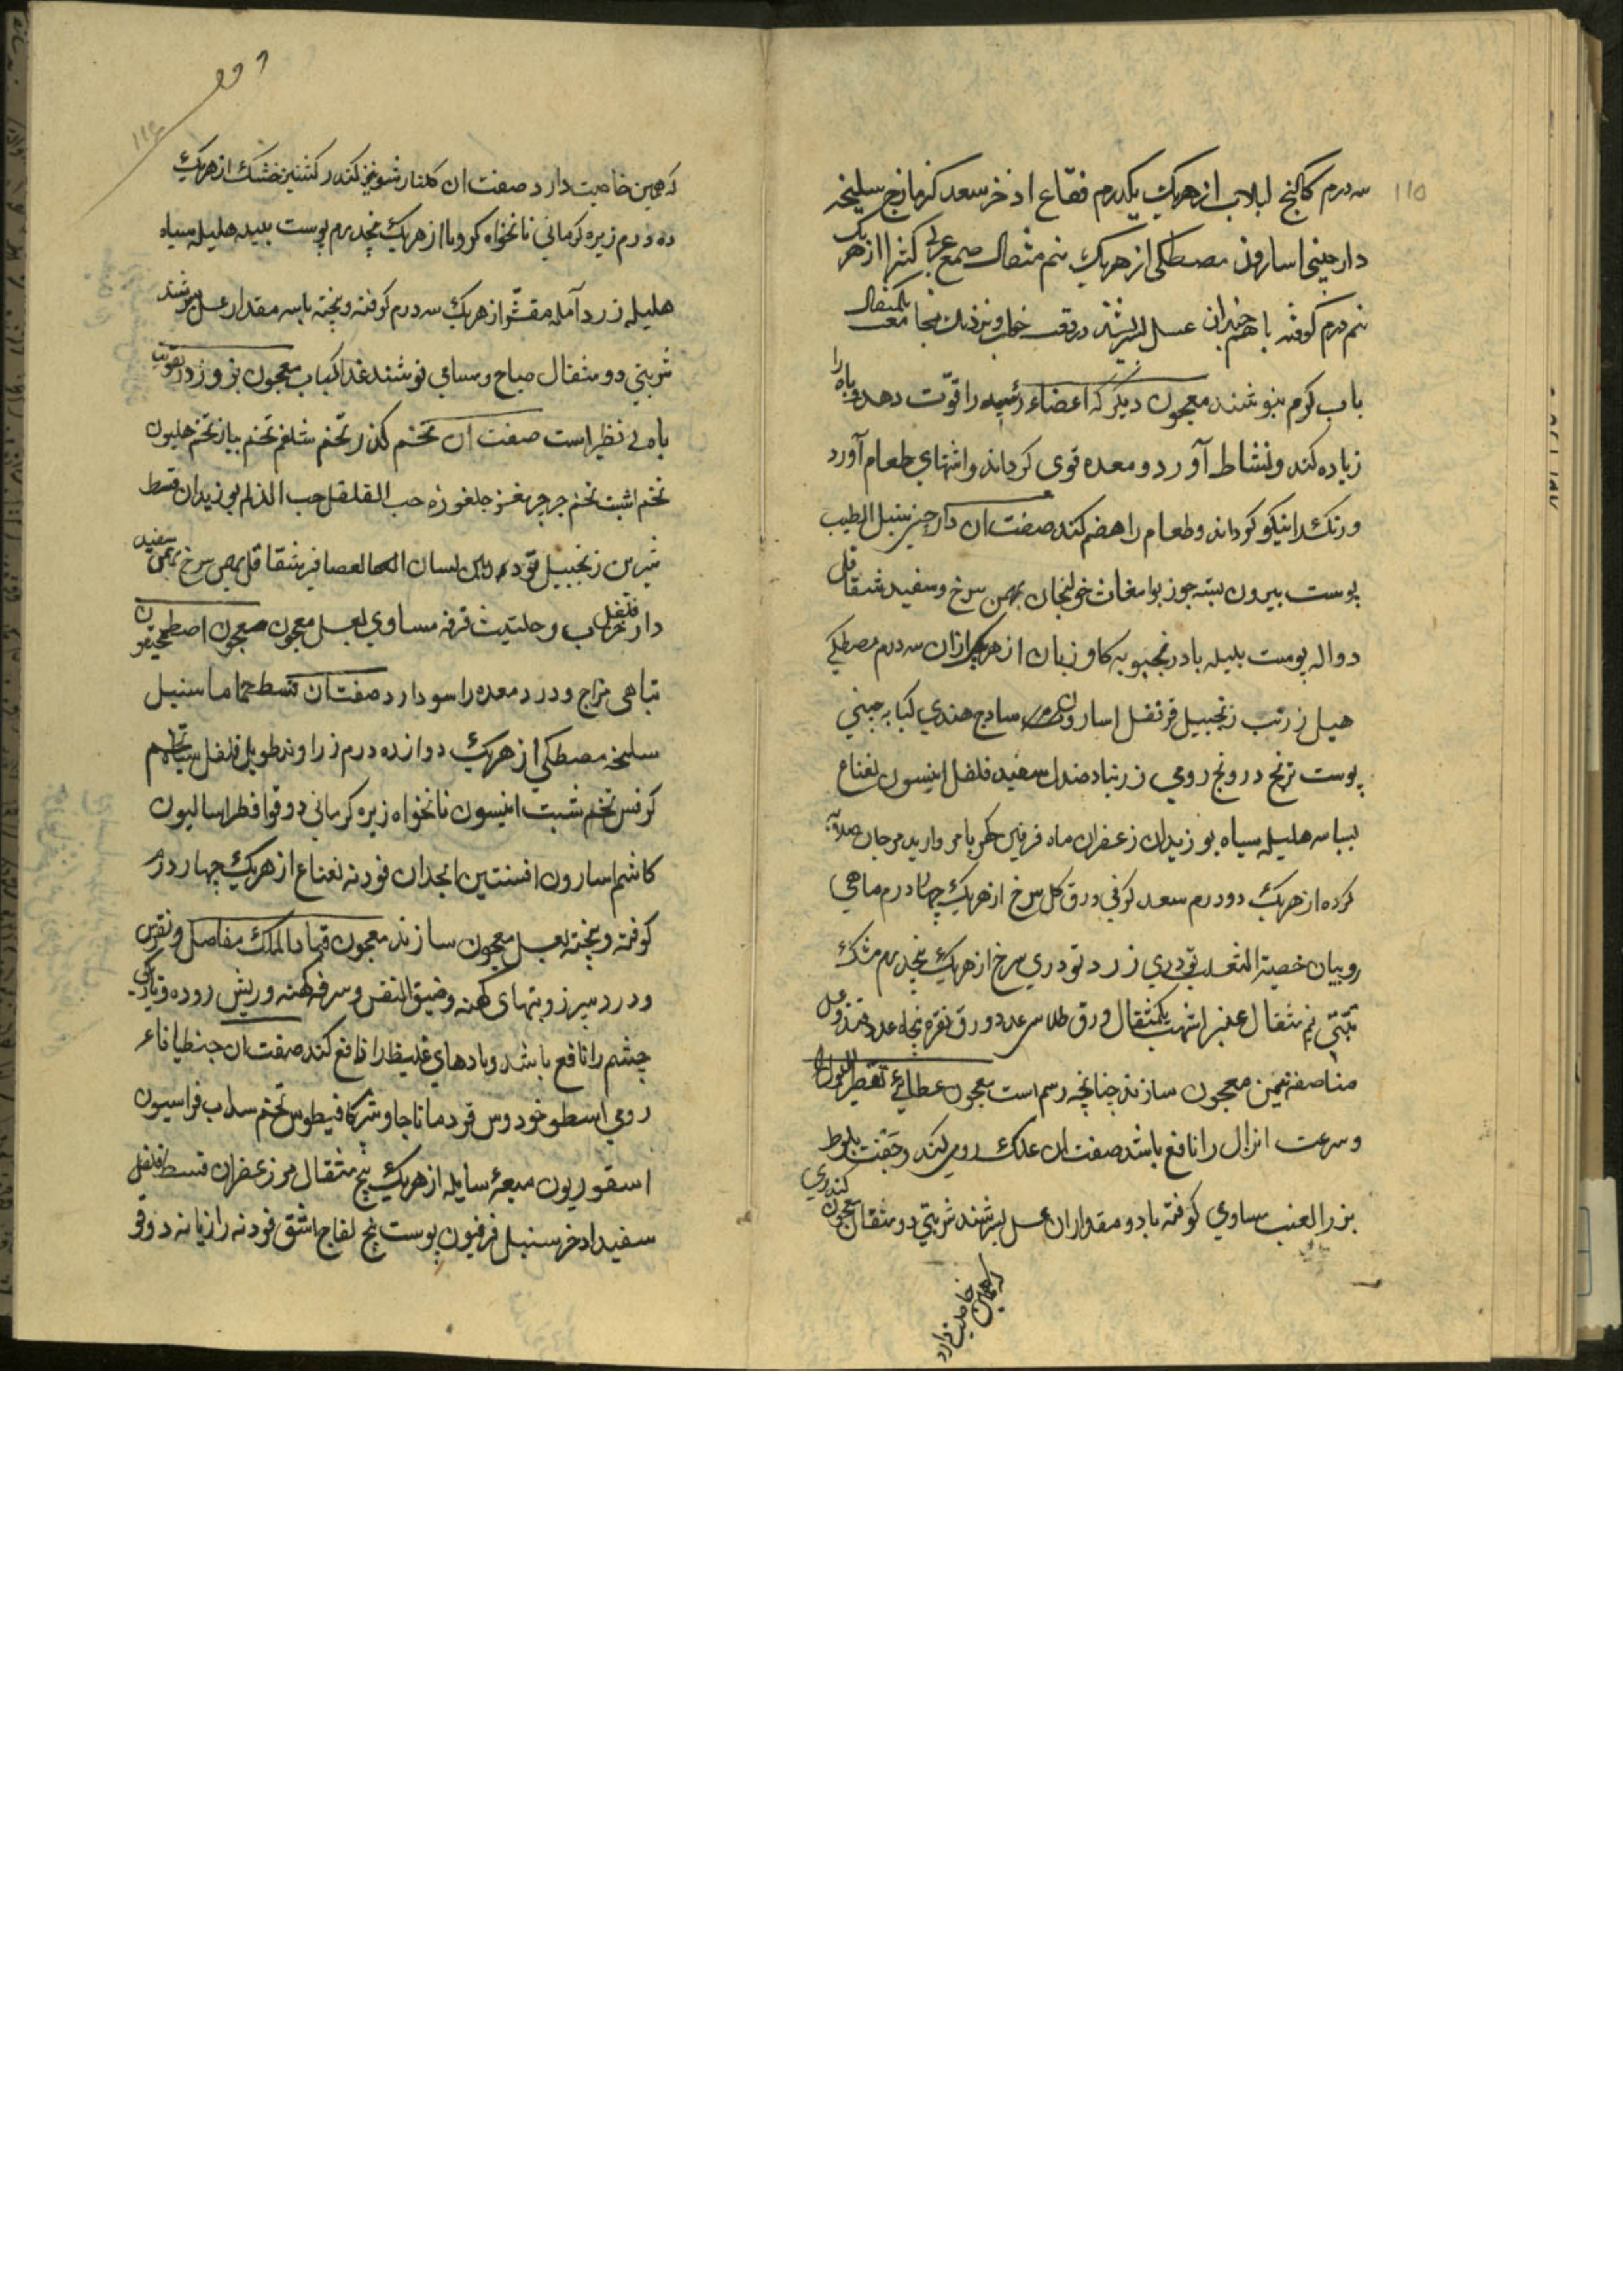 ۱۱۵
سه درم کاکنج لبلاب از هریک یکدرم فقاع اذخر سعد کزمازج سلیخه
دارچینی اسارون مصطکی از هریک نیم مثقال صمغ عربی کتیرا از هریک
نیم درم کوفته با هم چندان عسل بسرشند در وقت خواب و نزدیک مجامعت یکمثقال
باب کرم بنوشند معجون دیکر که اعضاء رئیسه را قوّت دهد و باه را
زیاده کند و نشاط آورد و معده قوی کرداند و اشتهای طعام آورد
و رنک را نیکو کرداند و طعام را هضم کند صفت ان دارچینی سنبل الطیب
پوست بیرون پسته جوز بوا مغاث خولنجان بهمن سرخ و سفید شقاقل
دواله پوست بلیله بادرنجبویه کاو زبان از هریک ازان سه درم مصطکی
هیل زرنب زنجبیل قرنفل اسارون سادج هندی کبابه چینی
پوست ترنج درونج رومی زرنباد صندل سفید فلفل انیسون نعناع
بسباسه هلیله سیاه بوزیدان زعفران ماه فرفین کهربا مروارید مرجان صلایه
کرده از هریک دو درم سعد کوفی ورق کل سرخ از هریک چهار درم ماهی
روبیان خصیة الثعلب تودری زرد تودری سرخ از هریک پنجدرم مشک
تبتی نیم مثقال عنبر اشهب یکمثقال ورق طلا سی عدد ورق نقره پنجاه عدد قند و عسل
مناصفه ثمین معجون سازند چنانچه رسم است معجون عطائی تقطیر البول را
و سرعت انزال را نافع باشد صفت ان علک رومی کند و جفت بلوط
بزر العنب مساوی کوفته با دو مقدار ان عسل بسرشند شربتی دو مثقال معجون کندری
که همین خاصیت دارد
۱۱۶
که همین خاصیت دارد صفت ان کلنار شونیز کندر کشنیز خشک از هریک
ده درم زیره کرمانی نانخواه کرویا از هریک پنجدرم پوست بلیله هلیله سیاه
هلیله زرد آمله مقشّر از هریک سه درم کوفته و بیخته با سه مقدار عسل بسرشند
شربتی دو مثقال صباح و مسای نوشند غذا کباب معجون بزور در تقویت
باه بی نظیر است صفت ان تخم کذر تخم شلغم تخم پیاز تخم هلیون
تخم اشبت تخم جرجیر مغز جلغوزه حب القلقل حب الذلم بوزیدان قسط
شیرین زنجبیل تودرین لسان العصافیر شقاقل بهمن سرخ بهمن سفید
دار فلفل و حلتیث قرفه مساوی بعسل معجون معجون اصطمحیقون
تباهی مزاج و درد معده را سود دارد صفت ان قسط حماما سنبل
سلیخه مصطکی از هریک دوازده درم زراوند طویل فلفل سیاه تخم
کرفس تخم شبت انیسون نانخواه زیره کرمانی دوقو افطراسالیون
کاشم اسارون افسنتین انجدان فودنه نعناع از هریک چهار درم
کوفته و بیخته بعسل معجون سازند معجون قباد الملک مفاصل و نقرس
و درد سپرز و تبهای کهنه و ضیق النفس و سرفه کهنه و ریش روده و تاریکی
چشم را نافع باشد و بادهای غلیظ را نافع کند صفت ان جنطیانای
رومی اسطوخودوس قردمانا جاوشیر کمافیطوس تخم سداب فراسیون
اسقوریون میعهٔ سایله از هریک پنج مثقال مر زعفران قسط فلفل
سفید اذخر سنبل فرفیون پوست بیخ لفاح اشق فودنه رازیانه دوقو